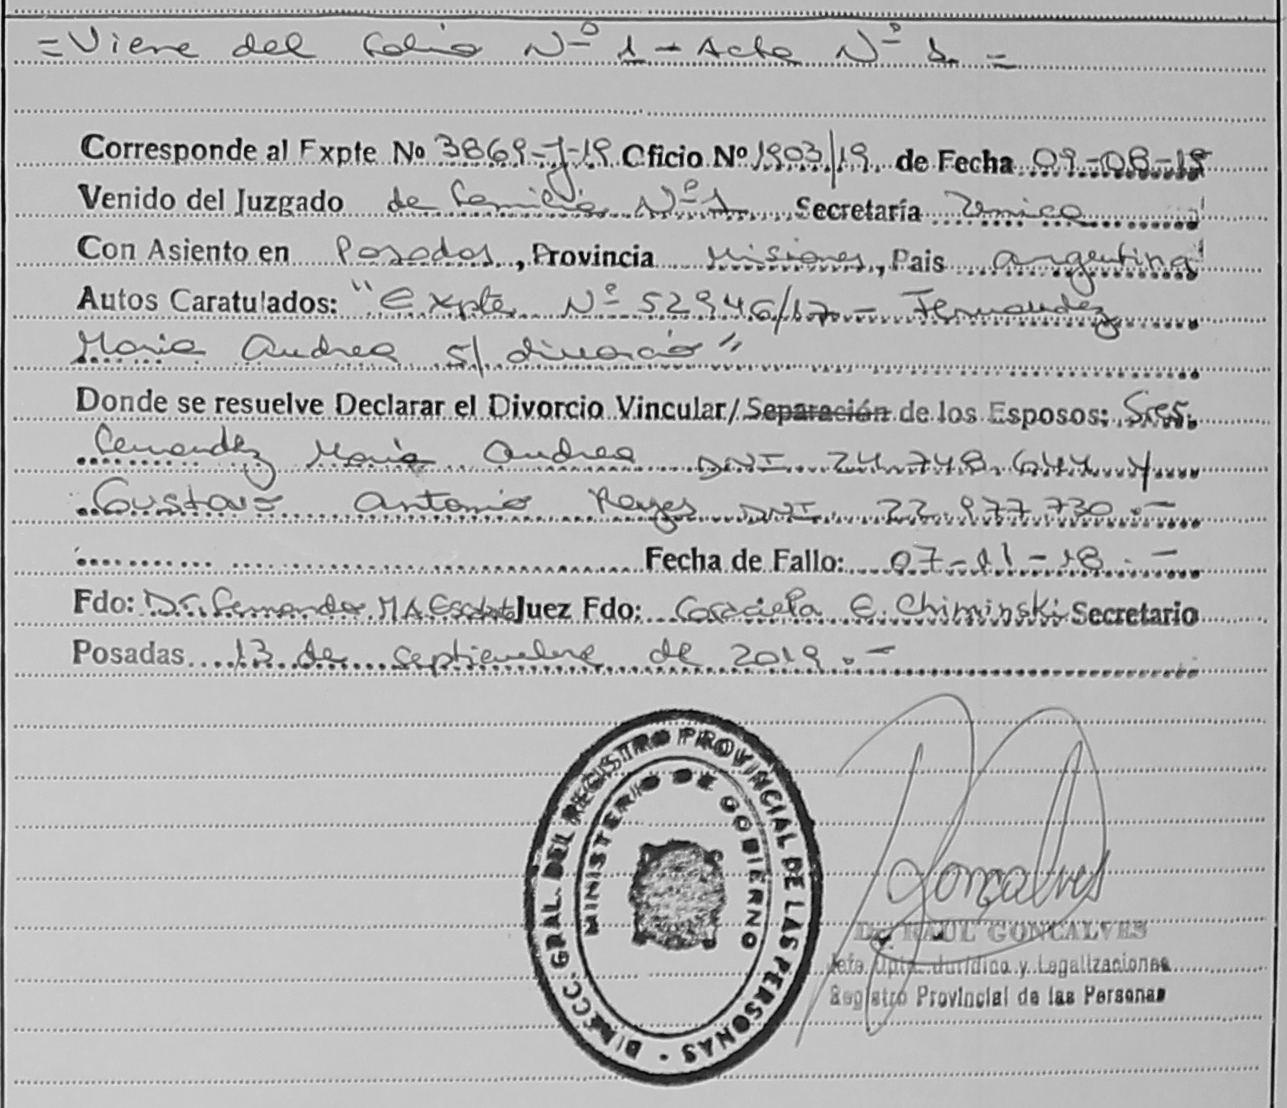 =Viene del folio Nº 1 - Acta Nº 1. =
Corresponde al Expte Nº 3869-J-19 Oficio Nº 1903/19. de Fecha 09-08-19
Venido del Juzgado de Familia Nº 1 Secretaría Unica
Con Asiento en Posadas, Provincia Misiones, Pais Argentina
Autos Caratulados: "Expte Nº 52946/17 - Fernandez
Maria Andrea s/ divorcio"
Donde se resuelve Declarar el Divorcio Vincular/Separación de los Esposos: Sres.
Fernandez Maria Andrea DNI 24.748.644 y
Gustavo Antonio Reyes DNI 22.977.730.-
Fecha de Fallo: 07-11-18.-
Fdo: Dr. Fernando M A Juez Fdo: Graciela E. Chiminski Secretario
Posadas 13 de septiembre de 2019.-
DIRECC. GRAL. DEL REGISTRO PROVINCIAL DE LAS PERSONAS
MINISTERIO DE GOBIERNO
Goncalves
Dr. RAUL GONCALVES
Jefe Dpto. Jurídico y Legalizaciones
Registro Provincial de las Personas